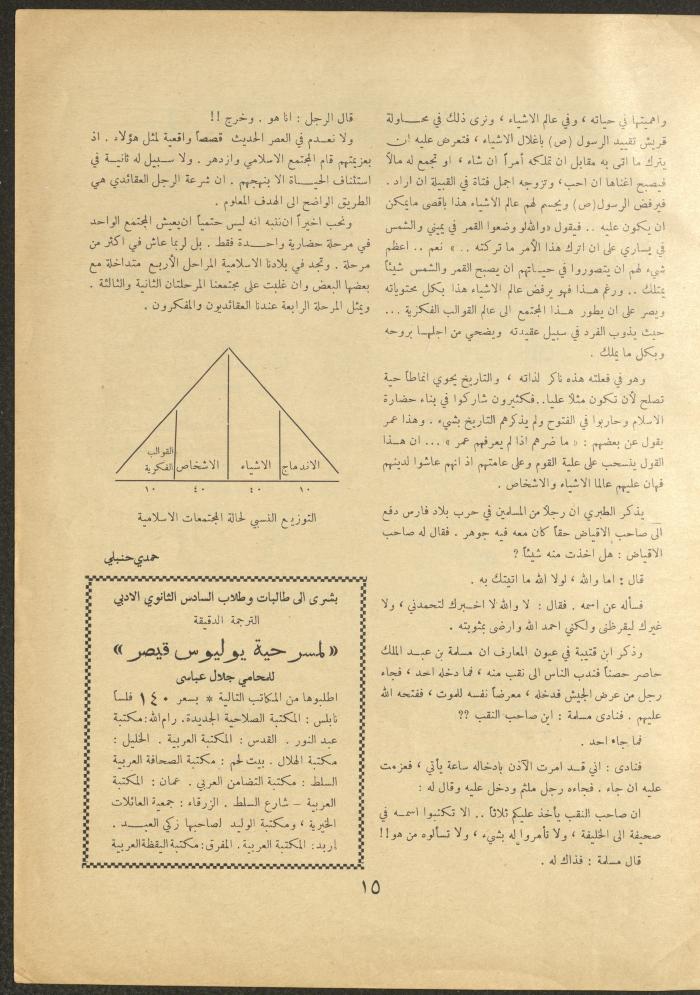 واهميتها في حياته ، وفي عالم الاشياء ، ونرى ذلك في محاولة
قريش تقييد الرسول (ص) بأغلال الاشياء ، فتعرض عليه ان
يترك ما اتى به مقابل ان تملكه أمراً ان شاء ، او تجمع له مالاً
فيصبح اغناها ان احب ، وتزوجه اجمل فتاة في القبيلة ان اراد .
فيرفض الرسول (ص) ويجسم لهم عالم الاشياء هذا بأقصى مايمكن
ان يكون عليه .. فيقول «والله لو وضعوا القمر في يميني والشمس
في يساري على ان اترك هذا الأمر ما تركته .. » نعم .. اعظم
شيء لهم ان يتصوروا في حياتهم ان يصبح القمر والشمس شيئاً
يمتلك .. ورغم هذا فهو يرفض عالم الاشياء هذا بكل محتوياته
ويصر على ان يطور هذا المجتمع الى عالم القوالب الفكرية ...
حيث يذوب الفرد في سبيل عقيدته ويضحي من اجلها بروحه
وبكل ما يملك .
وهو في فعلته هذه ناكر لذاته ، والتاريخ يحوي انماطاً حية
تصلح لأن تكون مثلاً عليا..فكثيرون شاركوا في بناء حضارة
الاسلام وحاربوا في الفتوح ولم يذكرهم التاريخ بشيء . وهذا عمر
يقول عن بعضهم : « ما ضرهم اذا لم يعرفهم عمر » ... ان هذا
القول ينسحب على علية القوم وعلى عامتهم اذ انهم عاشوا لدينهم
فهان عليهم عالما الاشياء والاشخاص .
يذكر الطبري ان رجلا من المسلمين في حرب بلاد فارس دفع
الى صاحب الاقباض حقاً كان معه فيه جوهر . فقال له صاحب
الاقباض : هل اخذت منه شيئاً ؟
قال : اما والله ، لولا الله ما اتيتك به .
فسأله عن اسمه . فقال : لا والله لا اخبرك لتحمدني ، ولا
غيرك ليقرظني ولكني احمد الله وارضى بمثوبته .
وذكر ابن قتيبة في عيون المعارف ان مسلمة بن عبد الملك
حاصر حصناً فندب الناس الى نقب منه ، فما دخله احد ، فجاء
رجل من عرض الجيش فدخله ، معرضاً نفسه للموت ، ففتحه الله
عليهم . فنادى مسلمة : اين صاحب النقب ؟؟
فما جاء احد .
فنادى : اني قد امرت الآذن بادخاله ساعة يأتي ، فعزمت
عليه ان جاء . فجاءه رجل ملثم ودخل عليه وقال له :
ان صاحب النقب يأخذ عليكم ثلاثاً .. الا تكتبوا اسمه في
صحيفة الى الخليفة ، ولا تأمروا له بشيء ، ولا تسألوه من هو!!
قال مسلمة : فذاك له .
قال الرجل : انا هو . وخرج !!
ولا نعدم في العصر الحديث قصصاً واقعية لمثل هؤلاء . اذ
بعزيمتهم قام المجتمع الاسلامي وازدهر . ولا سبيل له ثانية في
استئناف الحياة الا بنهجهم . ان شرعة الرجل العقائدي هي
الطريق الواضح الى الهدف المعلوم .
ونحب اخيراً ان ننبه انه ليس حتمياً ان يعيش المجتمع الواحد
في مرحلة حضارية واحدة فقط . بل لربما عاش في اكثر من
مرحلة . وتجد في بلادنا الاسلامية المراحل الأربع متداخلة مع
بعضها البعض وان غلبت على مجتمعنا المرحلتان الثانية والثالثة .
ويمثل المرحلة الرابعة عندنا العقائديون والمفكرون .
القوالب
الفكرية
الاندماج الاشياء الاشخاص
١٠ ٤٠ ٤٠ ١٠
التوزيع النسبي لحالة المجتمعات الاسلامية
حمدي حنبلي
بشرى الى طالبات وطلاب السادس الثانوي الادبي
الترجمة الدقيقة
«لمسرحية يوليوس قيصر »
للمحامي جلال عباسي
اطلبوها من المكاتب التالية * بسعر ١٤٠ فلساً
نابلس : المكتبة الصلاحية الجديدة. رام الله: مكتبة
عبد النور . القدس : المكتبة العربية . الخليل :
مكتبة الهلال . بيت لحم : مكتبة الصحافة العربية
السلط : مكتبة التضامن العربي . عمان : المكتبة
العربية - شارع السلط . الزرقاء : جمعية العائلات
الخيرية ، ومكتبة الوليد لصاحبها زكي العبد .
اربد: المكتبة العربية. المفرق: مكتبة اليقظة العربية
١٥